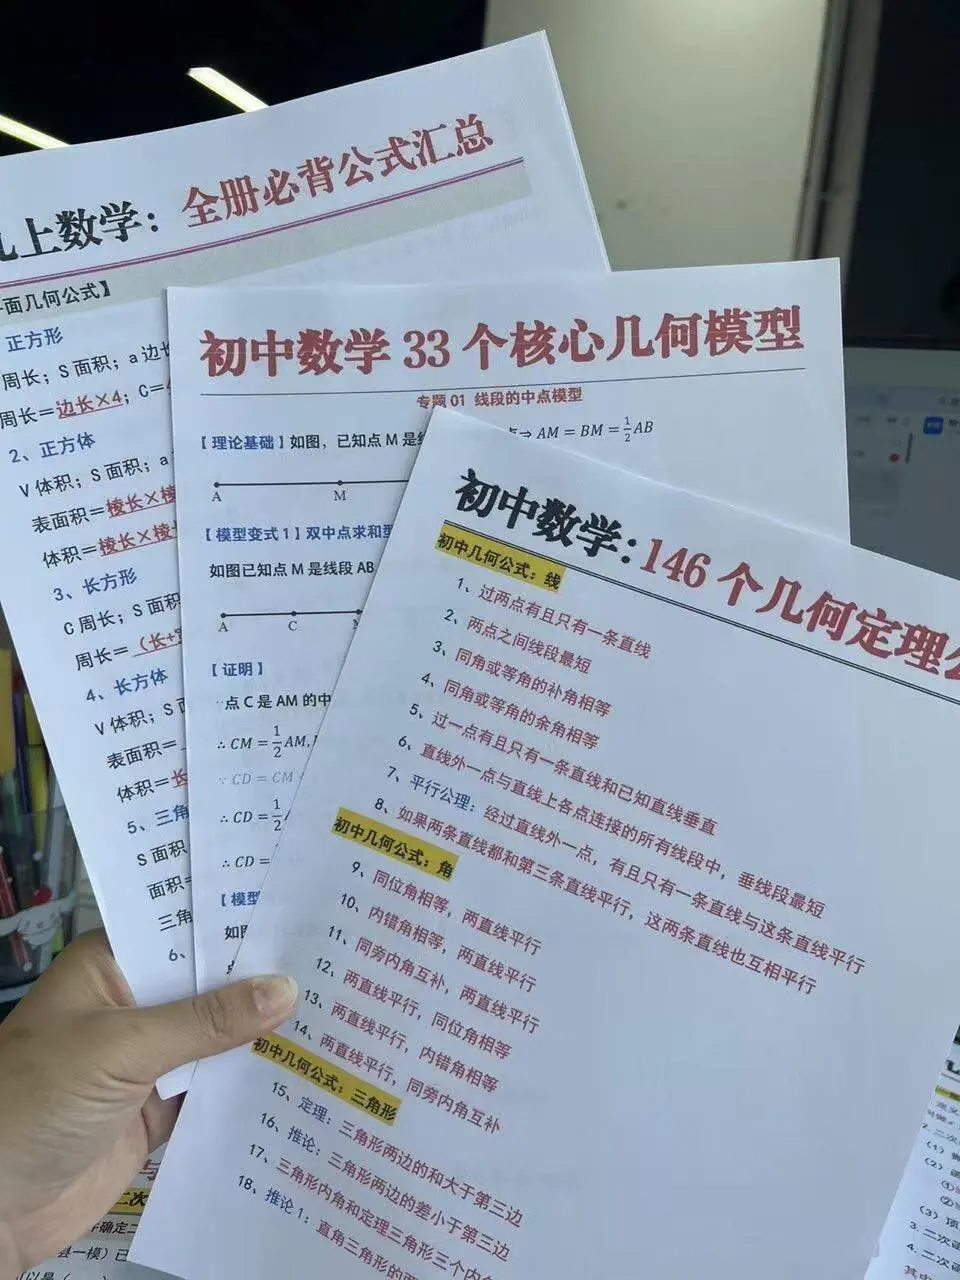 上数学：全册必背公式汇总
面几何公式】
正方形
周长；S 面积；a 边长
周长＝边长×4；C＝4
2、正方体
V 体积；S 面积；a
表面积＝棱长×棱
体积＝棱长×棱长
3、长方形
C 周长；S 面积
周长＝（长+宽
4、长方体
V 体积；S 面
表面积＝
体积＝长
5、三角
S 面积
面积＝
三角
6、
初中数学 33 个核心几何模型
专题 01 线段的中点模型
【理论基础】如图，已知点 M 是线
点⇒ AM = BM = 1/2 AB
A M
【模型变式 1】双中点求和型
如图已知点 M 是线段 AB
A C
【证明】
点 C 是 AM 的中
∴ CM = 1/2 AM,
∵ CD = CM
∴ CD = 1/2
∴ CD =
【模型
如图
初中数学：146 个几何定理
初中几何公式：线
1、过两点有且只有一条直线
2、两点之间线段最短
3、同角或等角的补角相等
4、同角或等角的余角相等
5、过一点有且只有一条直线和已知直线垂直
6、直线外一点与直线上各点连接的所有线段中，垂线段最短
7、平行公理：经过直线外一点，有且只有一条直线与这条直线平行
8、如果两条直线都和第三条直线平行，这两条直线也互相平行
初中几何公式：角
9、同位角相等，两直线平行
10、内错角相等，两直线平行
11、同旁内角互补，两直线平行
12、两直线平行，同位角相等
13、两直线平行，内错角相等
14、两直线平行，同旁内角互补
初中几何公式：三角形
15、定理：三角形两边的和大于第三边
16、推论：三角形两边的差小于第三边
17、三角形内角和定理三角形三个内角
18、推论 1：直角三角形的两
二次
确定二
县一模）已
可以是（
2. 二次
（1）
（2）
①
②
（3）顶
3. 二次函
4. 二次函
其中